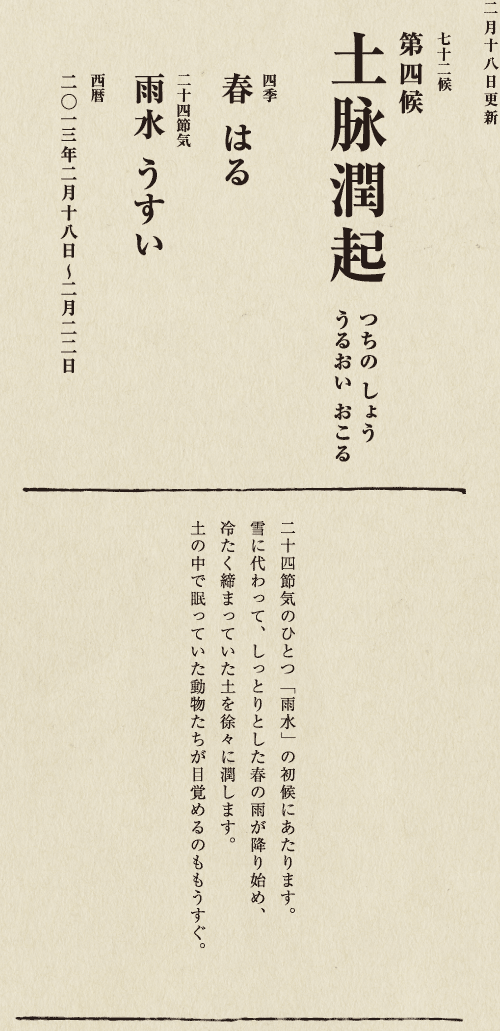 二月十八日更新
七十二候
第四候
土脉潤起
つちの しょう
うるおい おこる
四季
春 はる
二十四節気
雨水 うすい
西暦
二〇一三年二月十八日〜二月二二日
二十四節気のひとつ「雨水」の初候にあたります。
雪に代わって、しっとりとした春の雨が降り始め、
冷たく締まっていた土を徐々に潤します。
土の中で眠っていた動物たちが目覚めるのももうすぐ。